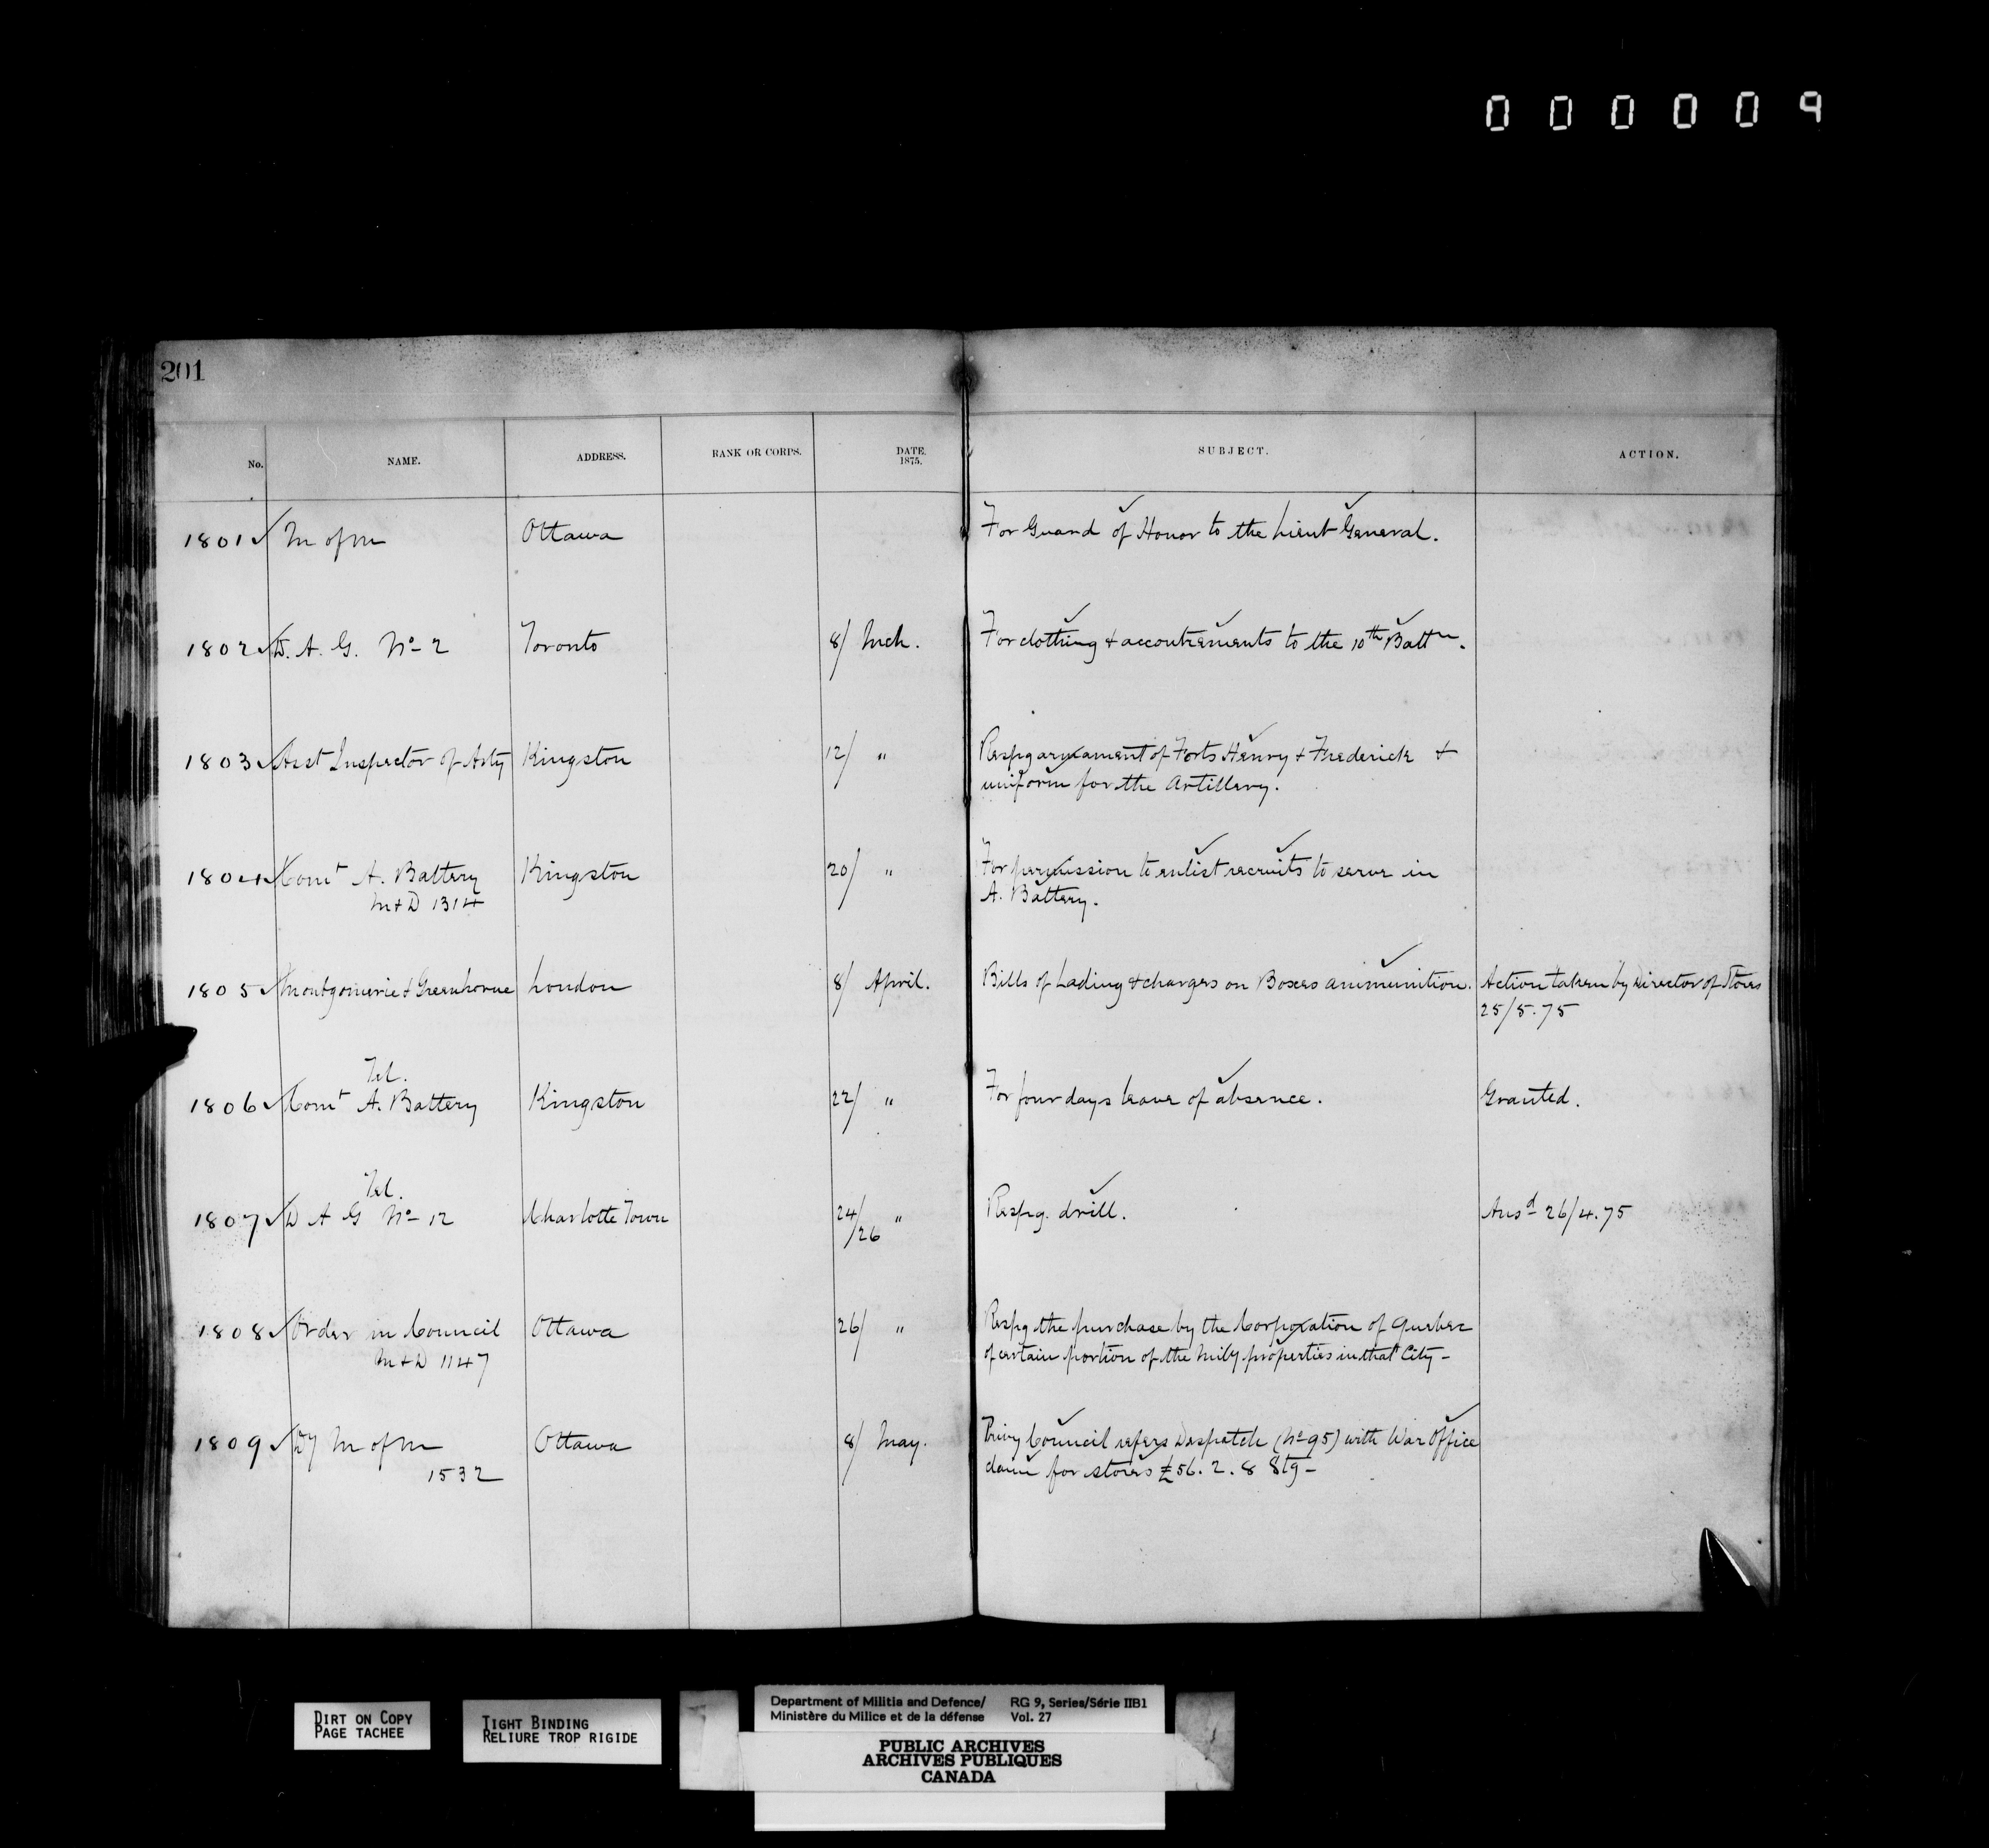 000009
201
No. NAME. ADDRESS. RANK OR CORPS. DATE. 1875. SUBJECT. ACTION.
1801 M of M Ottawa For Guard of Honor to the Lieut General.
1802 D. A. G. No 2 Toronto 8/ Mch. For clothing & accoutrements to the 10th Battn.
1803 Asst Inspector of Arty Kingston 12/ " Respg armament of Forts Henry & Frederick &
uniform for the Artillery.
1804 Comt A. Battery Kingston 20/ " For permission to enlist recruits to serve in
M & D 1314 A. Battery.
1805 Montgomerie & Greenhorne London 8/ April. Bills of Lading & charges on Boxes ammunition. Action taken by Director of Stores
25/5.75
Tel.
1806 Comt A. Battery Kingston 22/ " For four days leave of absence. Granted.
Tel.
1807 D A G No 12 Charlotte Town 24/26 " Respg. drill. Ansd 26/4.75
1808 Order in Council Ottawa 26/ " Respg the purchase by the Corporation of Quebec
M & D 1147 of certain portion of the Mily properties in that City -
1809 Dy M of M Ottawa 8/ May. Privy Council refers Despatch (No 95) with War Office
1532 claim for stores £56. 2. 8 Stg -
DIRT ON COPY
PAGE TACHEE
TIGHT BINDING
RELIURE TROP RIGIDE
Department of Militia and Defence/ RG 9, Series/Série IIB1
Ministère du Milice et de la défense Vol. 27
PUBLIC ARCHIVES
ARCHIVES PUBLIQUES
CANADA